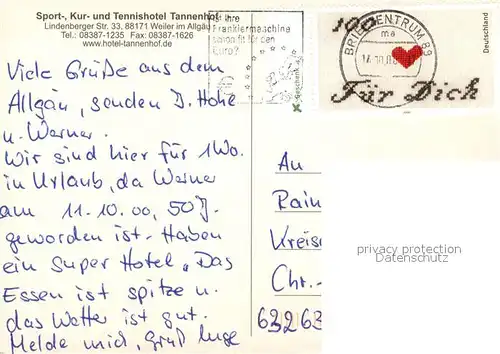 Sport-, Kur- und Tennishotel Tannenhof
Lindenberger Str. 33, 88171 Weiler im Allgäu
Tel.: 08387-1235 Fax: 08387-1626
www.hotel-tannenhof.de
Ist Ihre
Frankiermaschine
schon fit für den
Euro?
BRIEFZENTRUM 89
ma
100
Für Dich
Deutschland
Viele Grüße aus dem
Allgäu, senden D. Hohe
u. Werner.
Wir sind hier für 1 Wo.
in Urlaub, da Werner
am 11.10.00, 50 J.
geworden ist. Haben
ein Super Hotel. Das
Essen ist spitze u.
das Wetter ist gut.
Melde mich, Gruß Inge
An
Rain
Kreis
Chr.-
63263
privacy protection
Datenschutz